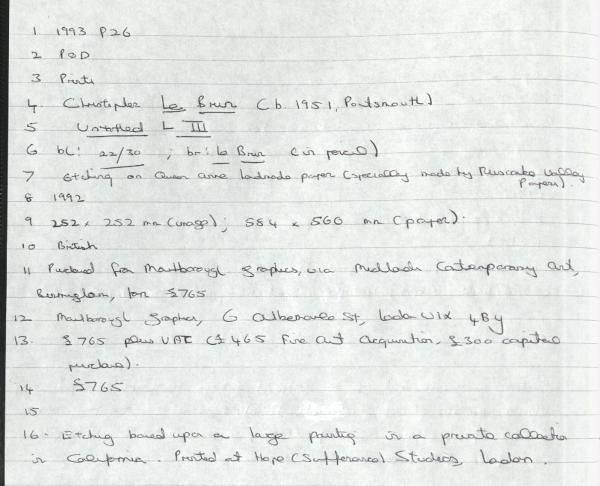 1 1993 P26
2 POD
3 Prints
4. Christopher Le Brun (b. 1951, Portsmouth)
5 Untitled L III
6 bl: 22/30 ; br: Le Brun (in pencil)
7 Etching on Queen Anne handmade paper (specially made by Ruscombe Valley
Papers).
8 1992
9 252 x 252 mm (image); 584 x 560 mm (paper).
10 British
11 Purchased from Marlborough Graphics, via Midlands Contemporary Art,
Birmingham, for £765
12 Marlborough Graphics, 6 Albemarle St, London W1X 4BY
13. £765 plus VAT (£465 Fine Art Acquisition, £300 capital
purchase).
14 £765
15
16. Etching based upon a large painting in a private collection
in California. Printed at Hope (Sufferance) Studios, London.